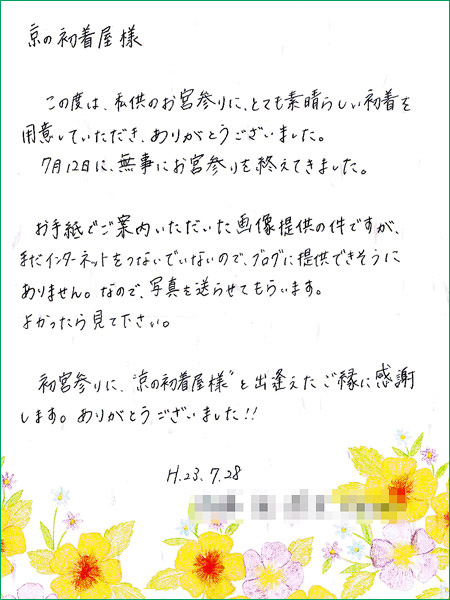 京の初着屋様
この度は、私供のお宮参りに、とても素晴らしい初着を
用意していただき、ありがとうございました。
7月12日に、無事にお宮参りを終えてきました。
お手紙でご案内いただいた画像提供の件ですが、
まだインターネットをつないでいないので、ブログに提供できそうに
ありません。なので、写真を送らせてもらいます。
よかったら見て下さい。
初宮参りに、"京の初着屋様"と出逢えたご縁に感謝
します。ありがとうございました!!
H.23.7.28